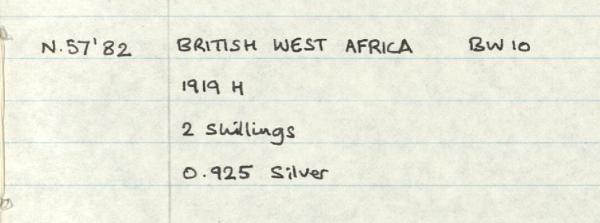 N.57'82 BRITISH WEST AFRICA BW 10
1919 H
2 Shillings
0.925 Silver